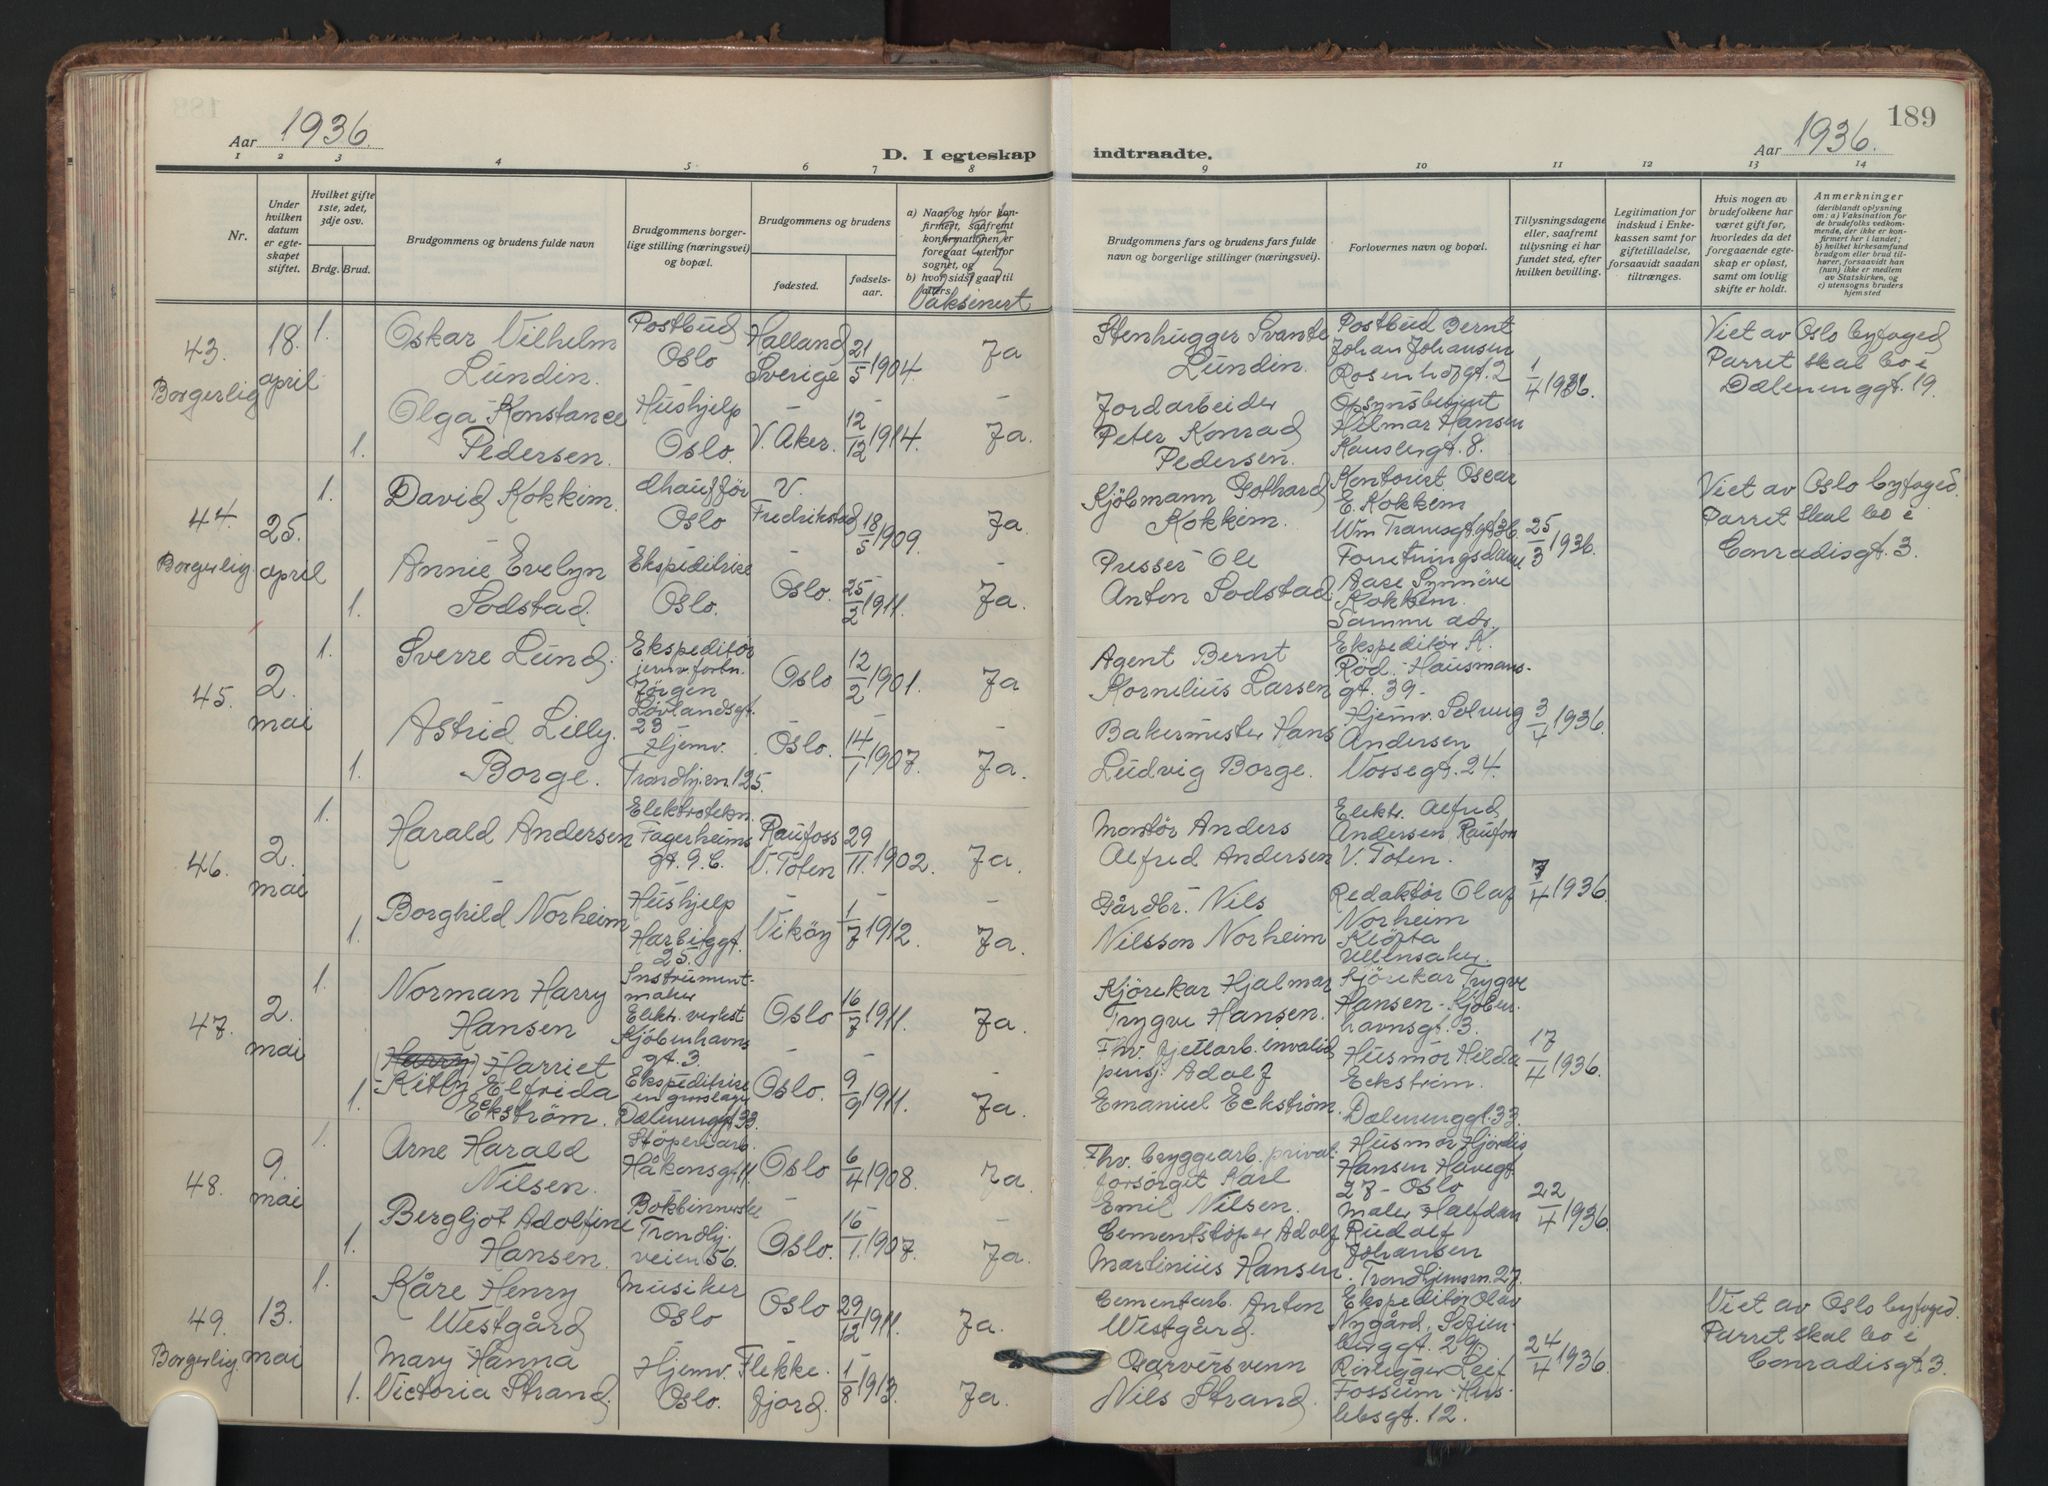 Aar 1936.
D. I egteskap indtraadte.
Aar 1936.
189
1 2 3 4 5 6 7 8 9 10 11 12 13 14
Nr.
Under hvilken datum er egte-skapet stiftet.
Hvilket gifte 1ste, 2det, 3dje osv.
Brdg. Brud.
Brudgommens og brudens fulde navn
Brudgommens borger-lige stilling (næringsvei) og bopæl.
Brudgommens og brudens
fødested.
fødsels-aar.
a) Naar og hvor kon-firmert, saafremt konfirmationen er foregaat utenfor sognet, og
b) hvor sidst gaat til alters.
Vaksinert
Brudgommens fars og brudens fars fulde navn og borgerlige stillinger (næringsvei).
Forlovernes navn og bopæl.
Tillysningsdagene eller, saafremt tillysning ei har fundet sted, efter hvilken bevilling.
Legitimation for indskud i Enke-kassen samt for giftetilladelse, forsaavidt saadan tiltrænges.
Hvis nogen av brudefolkene har været gift før, hvorledes da det foregaaende egte-skap er opløst, samt om lovlig skifte er holdt.
Anmerkninger
(deriblandt oplysning om: a) Vaksination for de brudefolks vedkom-mende, der ikke er kon-firmert her i landet; b) hvilket kirkesamfund brudgom eller brud til-hører, forsaavidt han (hun) ikke er medlem av Statskirken, og c) utensogns bruders hjemsted
43. Borgerlig
18. april
1. Oskar Vilhelm Lundin.
Postbud Oslo
Halland Sverige
21/5 1904.
Ja
Stenhugger Svante Lundin.
Postbud Bernt Johan Johansen Rosenhofgt. 2
1/4 1936.
Viet av Oslo byfoged
Parret skal bo i
Dælenenggt. 19.
1. Olga Konstance Pedersen.
Hushjelp Oslo.
V. Aker.
12/12 1914.
Ja.
Jordarbeider Peter Konrad Pedersen.
Opsynsbetjent Hilmar Hansen
44. Borgerlig
25. april
1. David Kokkim.
Chaufför Oslo
V. Fredrikstad
18/5 1909.
Ja
Kjöbmann Gothard Kokkim.
Kontorist Oscar E. Kokkem
25/3 1936.
Viet av Oslo byfoged.
Parret skal bo i
Conradisgt. 3.
1. Annie Evelyn Sodstad.
Ekspeditrise Oslo.
Oslo.
25/2 1911.
Ja.
Presser Ole Anton Sodstad.
Forretningsdame Aase Synnöve Kokkem. Samme adr.
45.
2. mai
1. Sverre Lund.
Ekspeditør jernv. forbn. Jørgen Løvlandsgt. 29
Oslo
12/2 1901.
Ja
Agent Bernt Kornelius Larsen
Ekspeditør A. Röd. Hausmans-gt. 39.
3/4 1936.
1. Astrid Lilly Borge.
Hjemv. Trondhj.en. 125.
Oslo.
14/1 1907.
Ja.
Bakermester Hans Ludvig Borge.
Hjemv. Solveig Andersen Vossegt. 24.
46.
2. mai
1. Harald Andersen
Elektrotekn. Fagerheims gt. 9. C.
Raufoss V. Toten
29/11 1902.
Ja.
Montör Anders Alfred Andersen
Elektr. Alfred Andersen, Raufoss V. Toten.
7/4 1936.
1. Borghild Norheim
Hushjelp Harbitzgt. 25.
Viköy
1/7 1912.
Ja.
Gårdbr. Nils Nilsson Norheim
Redaktør Olaf Norheim Klöfta Ullensaker.
47.
2. mai
1. Norman Harry Hansen
Instrument-maker Elektr. verkst Kjöbenhavns gt. 3.
Oslo
16/7 1911.
Ja.
Kjörekar Hjalmar Trygve Hansen.
Kjörekar Trygve Hansen. Kjöben-havnsgt. 3.
17/4 1936.
1. (Harry) Harriet Kitty Elfrida Eckström.
Ekspeditrise en grosslager Dælenenggt. 33.
Oslo.
9/9 1911.
Ja.
Fhv. fjellarb. invalid pensj. Adolf Emanuel Eckström.
Husmor Hilda Eckström. Dælenenggt. 33.
48.
9. mai
1. Arne Harald Nilsen.
Støperiarb. Håkonsgt. 11.
Oslo
6/4 1908.
Ja.
Fhv. bryggearb. privat forsörget Karl Emil Nilsen.
Husmor Hjördis Hansen Havegt 27 - Oslo
22/4 1936
1. Bergljot Adolfine Hansen.
Bokbinnerske Trondhj. veien 56.
Oslo.
16/1 1907.
Ja.
Cementstøper Adolf Martinius Hansen.
Maler Halfdan Rudolf Johansen Trondhjemsv. 27.
49. Borgerlig.
13. mai
1. Kåre Henry Westgård
Musiker Oslo
Oslo
29/12 1911.
Ja.
Cementarb. Anton Westgård.
Ekspeditør Olav Nygård, Sofien-berggt. 29.
24/4 1936.
Viet av Oslo byfoged.
Parret skal bo i
Conradisgt. 3.
1. Mary Hanna Victoria Strand.
Hjemv. Oslo.
Flekke-fjord.
1/8 1913.
Ja.
Garversvenn Nils Strand.
Rörlegger Leif Fossum.